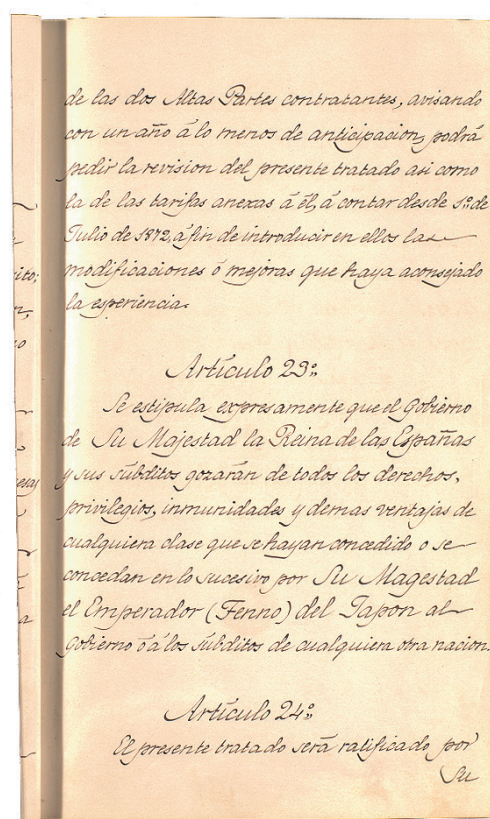 de las dos Altas Partes contratantes, avisando
con un año á lo menos de anticipacion, podrá
pedir la revision del presente tratado asi como
la de las tarifas anexas á él, á contar desde 1º de
Julio de 1872, á fin de introducir en ellos las
modificaciones ó mejoras que haya aconsejado
la esperiencia.
Artículo 23º
Se estipula expresamente que el Gobierno
de Su Majestad la Reina de las Españas
y sus súbditos gozarán de todos los derechos,
privilegios, inmunidades y demas ventajas de
cualquiera clase que se hayan concedido o se
concedan en lo sucesivo por Su Magestad
el Emperador (Fenno) del Japon al
Gobierno ó á los súbditos de cualquiera otra nacion.
Artículo 24º
El presente tratado será ratificado por
Su